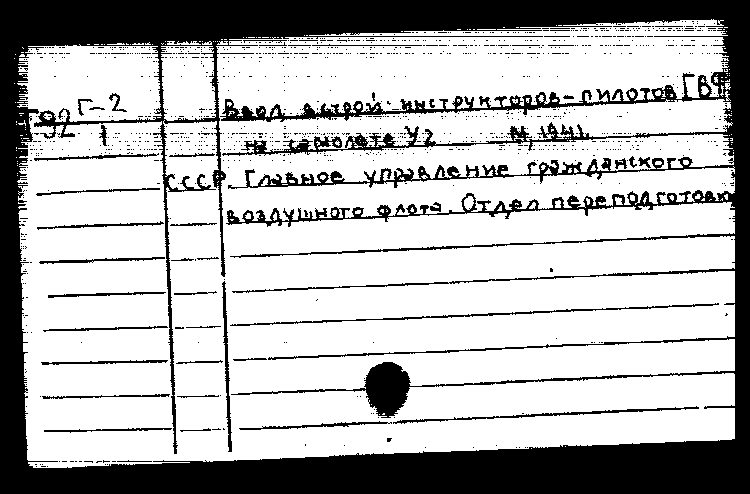 Г92 Г-2
1
Ввод в строй инструкторов-пилотов [ГВФ
на самолете У2 М, 1941.
СССР. Главное управление гражданского
воздушного флота. Отдел переподготовки